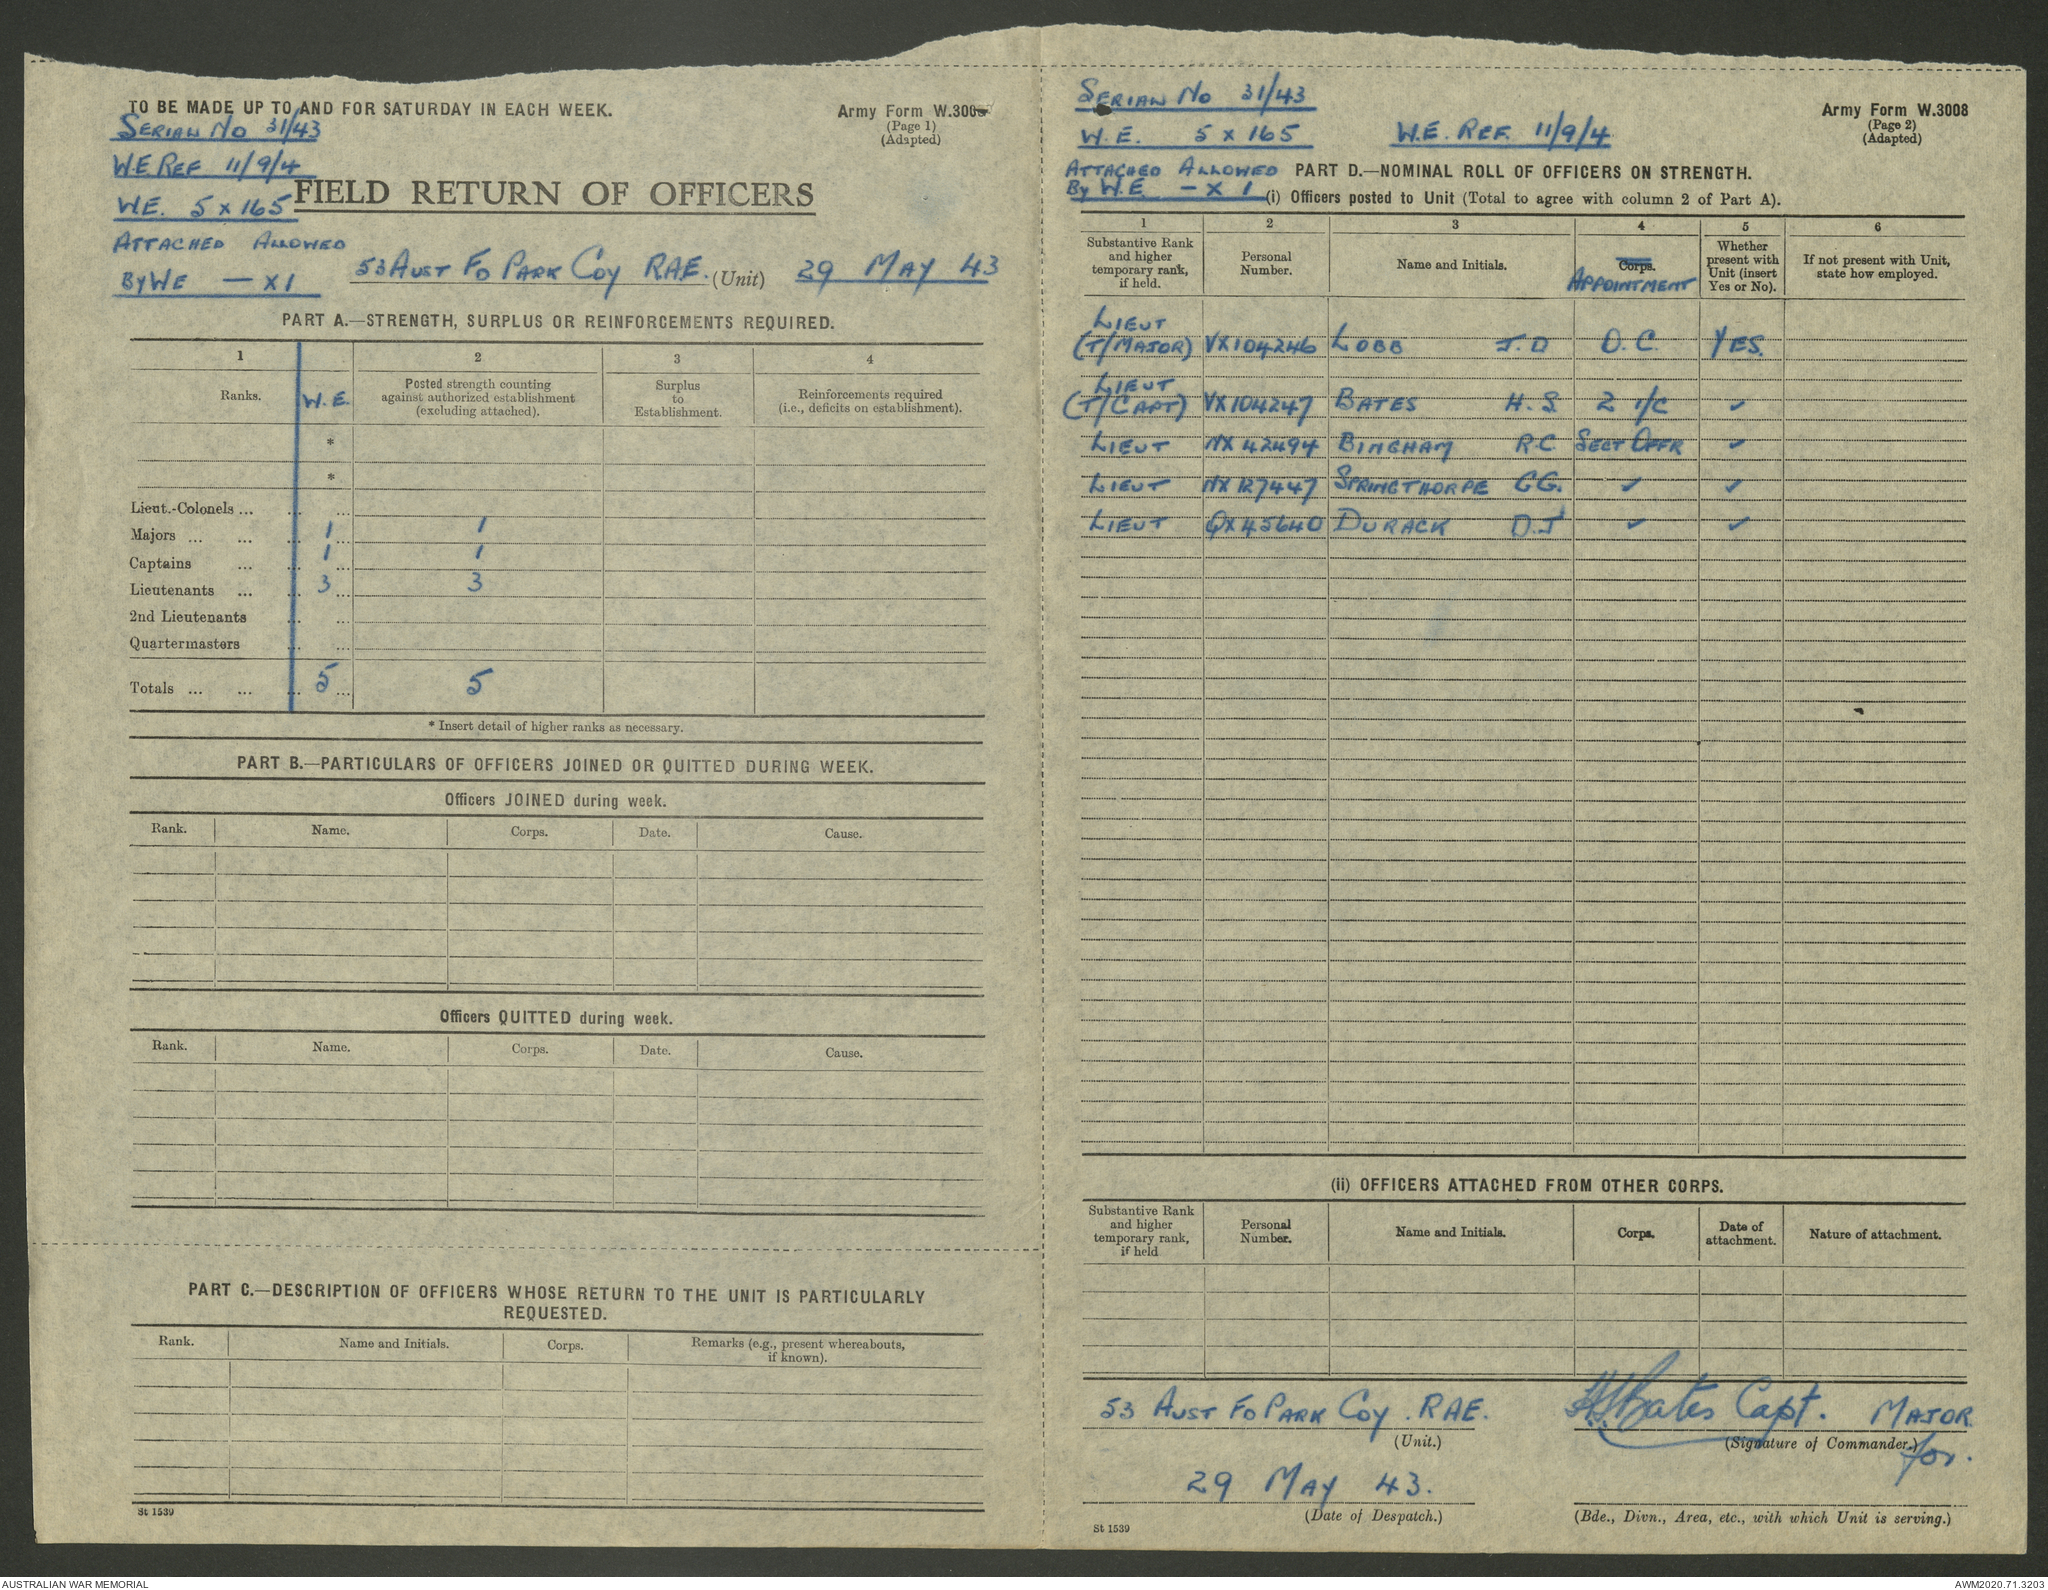 TO BE MADE UP TO AND FOR SATURDAY IN EACH WEEK.
Army Form W.3008
(Page 1)
(Adapted)
SERIAL No 31/43
W.E REF 11/9/4
FIELD RETURN OF OFFICERS
W.E. 5 x 165
ATTACHED ALLOWED
By WE — x 1
53 AUST FD PARK COY RAE. (Unit) 29 MAY 43
PART A.—STRENGTH, SURPLUS OR REINFORCEMENTS REQUIRED.
1 2 3 4
Ranks. W.E. Posted strength counting against authorized establishment (excluding attached). Surplus to Establishment. Reinforcements required (i.e., deficits on establishment).
*
*
Lieut.-Colonels ... ... ...
Majors ... ... ... 1 ... 1
Captains ... ... 1 ... 1
Lieutenants ... ... 3 ... 3
2nd Lieutenants ... ...
Quartermasters ... ...
Totals ... ... ... 5 ... 5
* Insert detail of higher ranks as necessary.
PART B.—PARTICULARS OF OFFICERS JOINED OR QUITTED DURING WEEK.
Officers JOINED during week.
Rank. Name. Corps. Date. Cause.
Officers QUITTED during week.
Rank. Name. Corps. Date. Cause.
PART C.—DESCRIPTION OF OFFICERS WHOSE RETURN TO THE UNIT IS PARTICULARLY
REQUESTED.
Rank. Name and Initials. Corps. Remarks (e.g., present whereabouts, if known).
St 1539
SERIAL No 31/43
Army Form W.3008
(Page 2)
(Adapted)
W.E. 5 x 165 W.E. REF. 11/9/4
ATTACHED ALLOWED
By W.E. — x 1
PART D.—NOMINAL ROLL OF OFFICERS ON STRENGTH.
(i) Officers posted to Unit (Total to agree with column 2 of Part A).
1 2 3 4 5 6
Substantive Rank and higher temporary rank, if held. Personal Number. Name and Initials. Corps. APPOINTMENT Whether present with Unit (insert Yes or No). If not present with Unit, state how employed.
LIEUT
(T/MAJOR) VX104246 LOBB J.D O.C. YES.
LIEUT
(T/CAPT) VX104247 BATES H.S. 2 I/C ✓
LIEUT NX 42494 BINGHAM R.C SECT OFFR ✓
LIEUT NX 127447 SPRINGTHORPE C.G. ✓ ✓
LIEUT QX45640 DURACK D.J ✓ ✓
(ii) OFFICERS ATTACHED FROM OTHER CORPS.
Substantive Rank and higher temporary rank, if held Personal Number. Name and Initials. Corps. Date of attachment. Nature of attachment.
53 AUST FD PARK COY. RAE. HSBates Capt. MAJOR
(Unit.) (Signature of Commander.) for.
29 MAY 43.
(Date of Despatch.) (Bde., Divn., Area, etc., with which Unit is serving.)
St 1539
AUSTRALIAN WAR MEMORIAL
AWM2020.71.3203